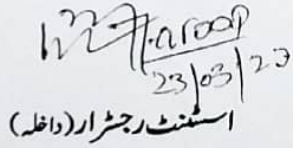 23/03/23
اسسٹنٹ رجسٹرار (داخلہ)